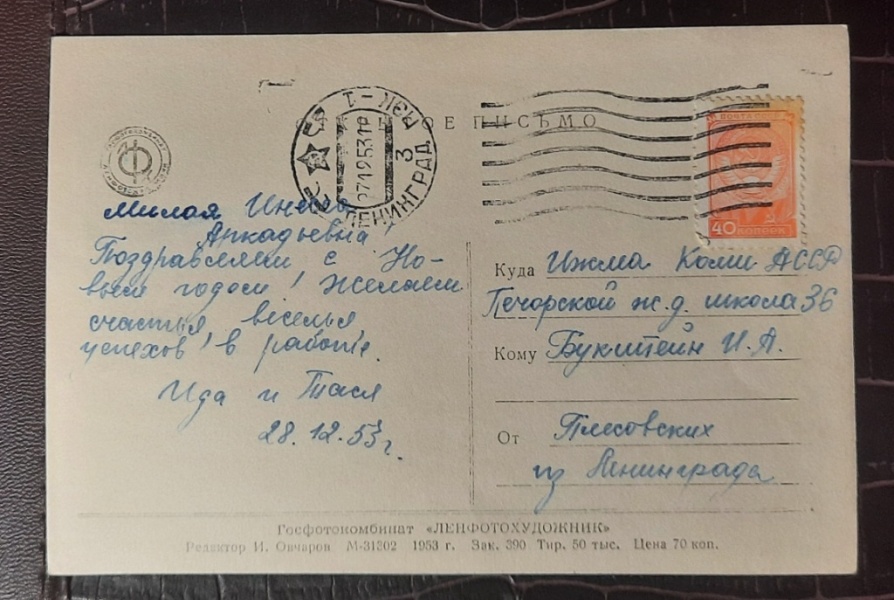 ОЕ ПИСЬМО
ЛЕНИНГРАД
РЭК-1
3
ПОЧТА СССР
40 КОПЕЕК
Милая
Аркадьевна
Поздравляем с Но-
вым годом! Желаем
счастья веселья
успехов в работе.
Ида и Тася
28.12.53 г.
Куда Ижма Коми АССР
Печорской ж.д. школа 36
Кому Букштейн И.А.
От Плесовских
из Ленинграда
Госфотокомбинат «ЛЕНФОТОХУДОЖНИК»
Редактор И. Овчаров М-31302 1953 г. Зак. 390 Тир. 50 тыс. Цена 70 коп.